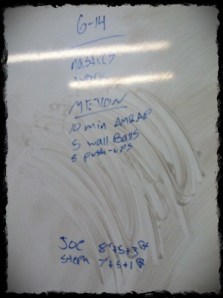 6-14
METCON
10 min AMRAP
5 wall Balls
5 push-ups
JOE 8+5+3 Rx
Steph 7+5+1 Rx